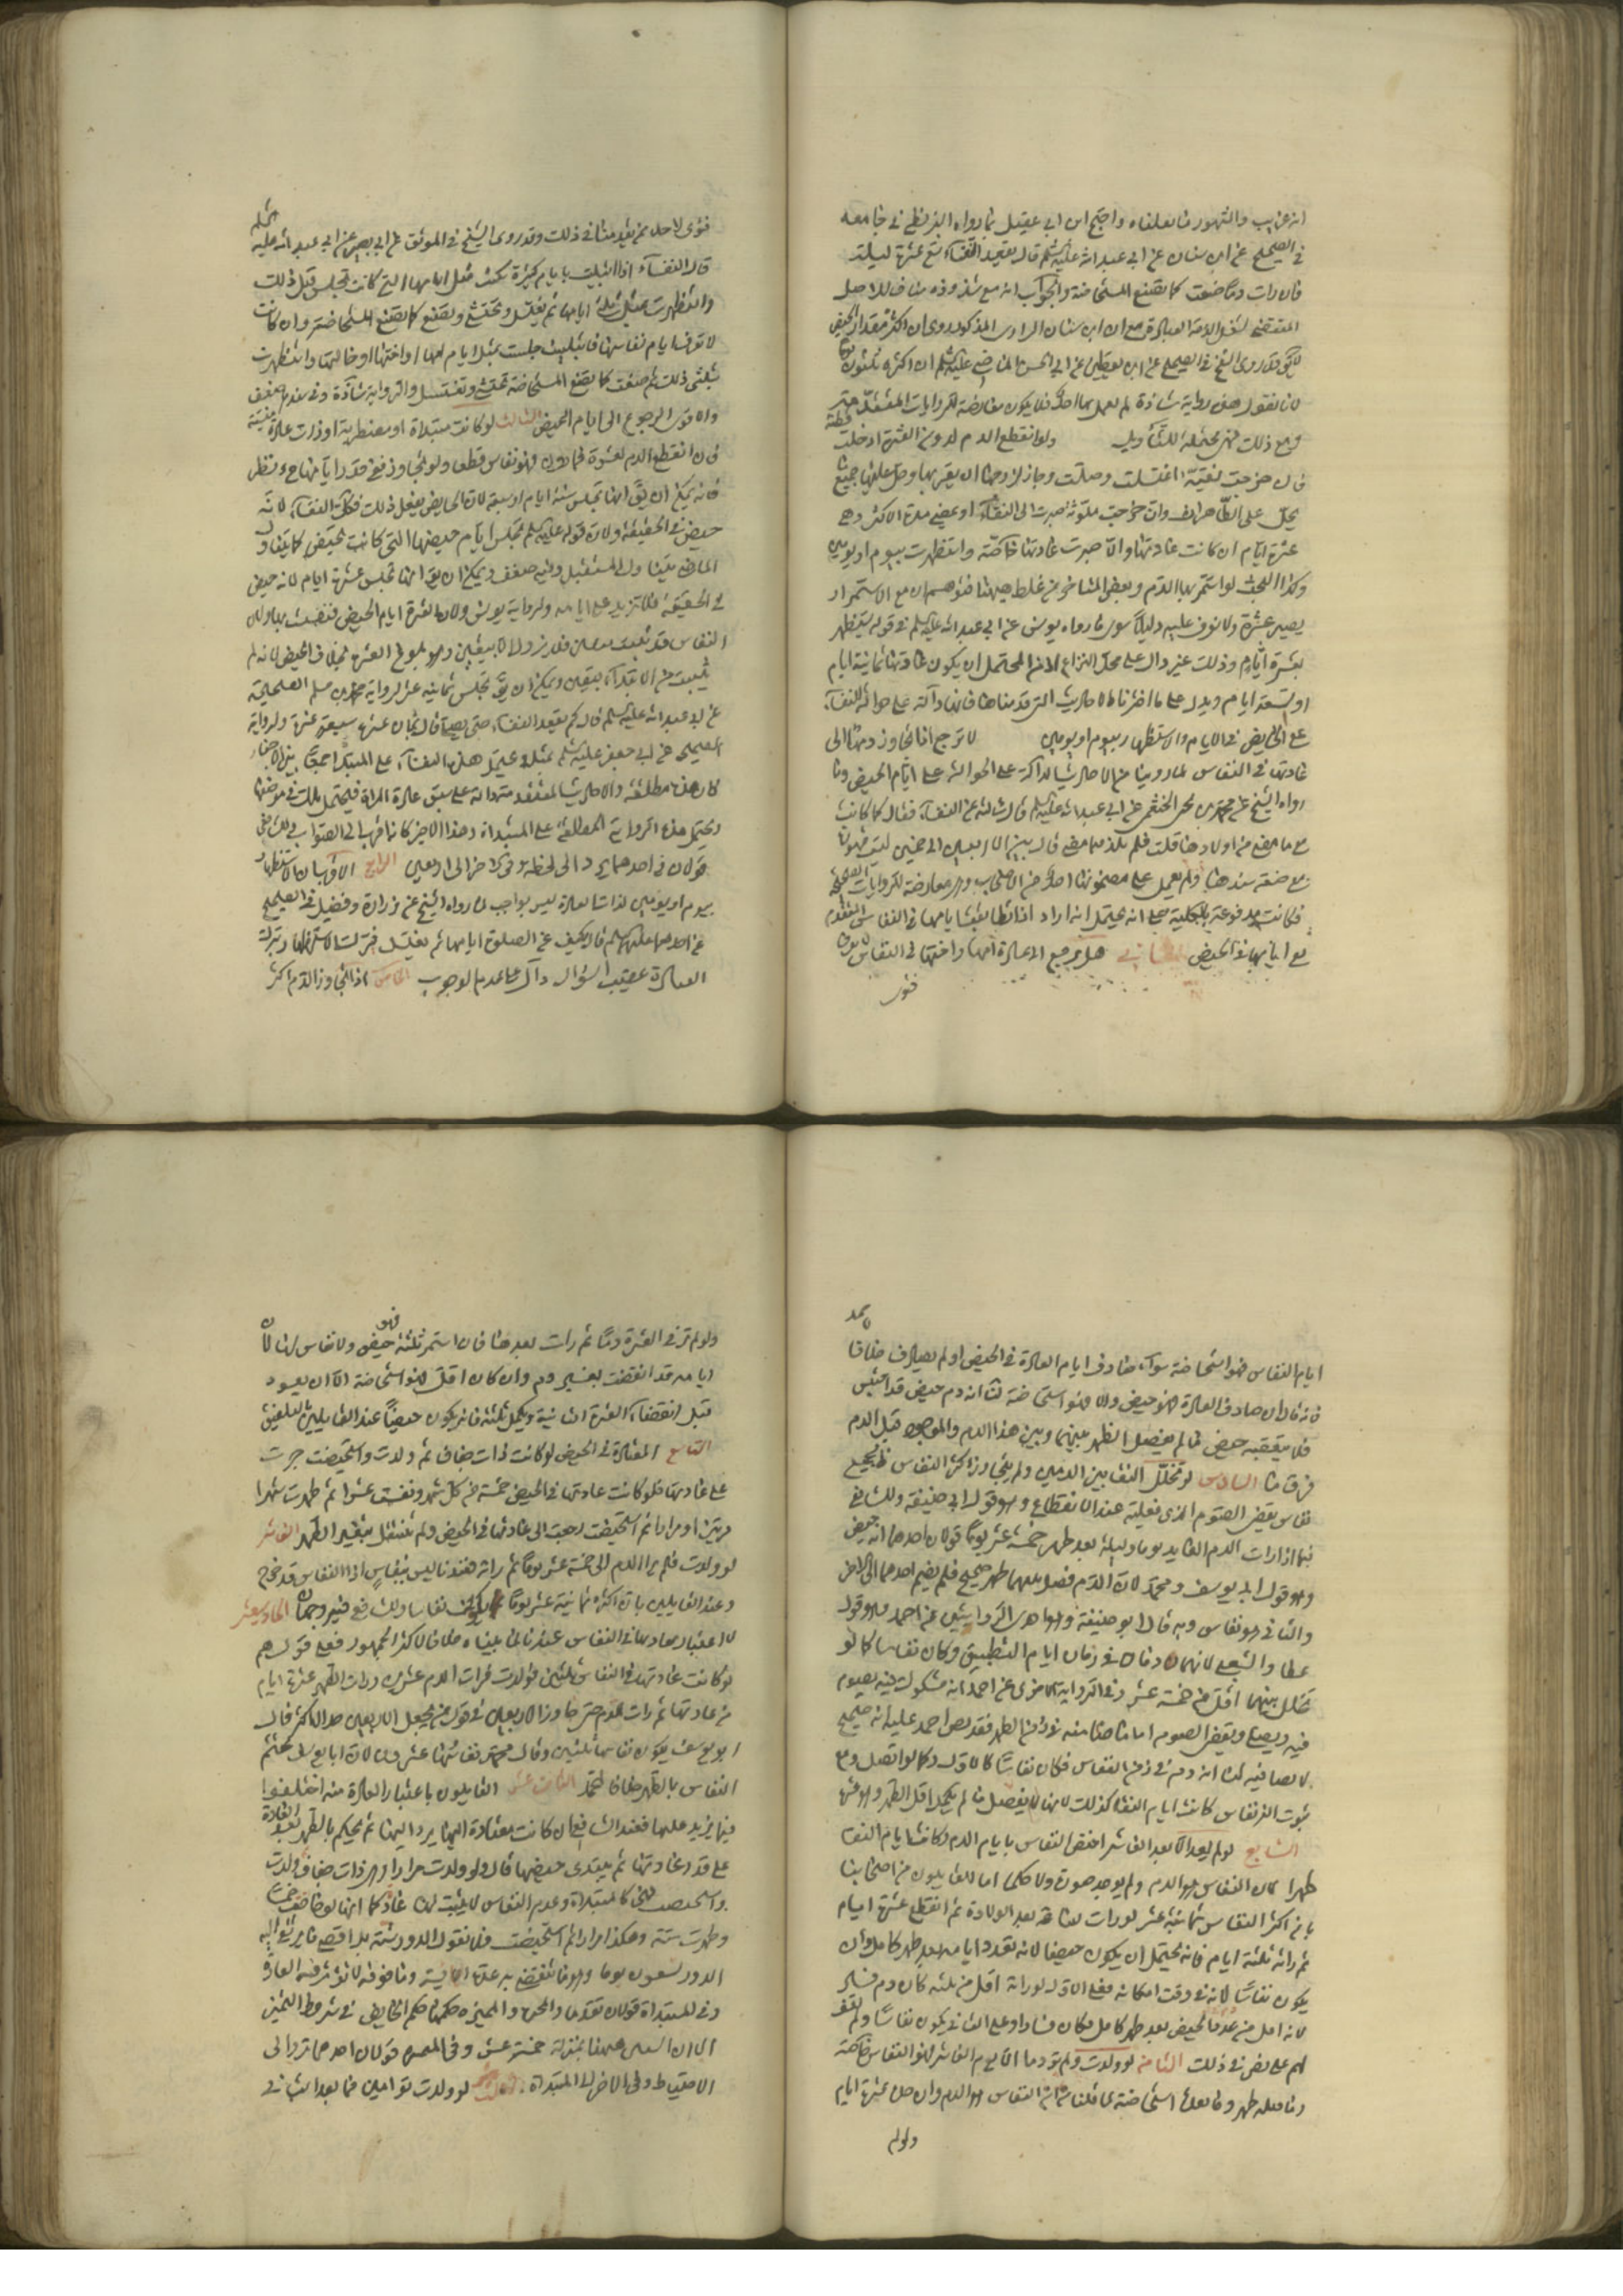 انه غريب والمشهور ما نعلناه واحتج ابن ابي عقيل بما رواه البزنطي في جامعه
في الصحيح عن ابن سنان عن ابي عبد الله عليه السلم قال تقعد النفساء تسع عشرة ليلة
فان رات دما صنعت كما تصنع المستحاضة والجواب انه مع شذوذه مناف للاصل
المقتضي لشغل الذمة بالعبادة مع ان ابن سنان الراوي المذكور روى ان اكثره مقدار الحيض
لا يقو قد روى الشيخ في الصحيح عن ابن يقطين عن ابي الحسن الماضي عليه السلم ان اكثره ثلثون يوما
لانا نقول هذه رواية شاذة لم يعمل بها احد فلا يكون معارضة للروايات
ومع ذلك فهي محتملة للتأويل ولو انقطع الدم لدون العشرة ادخلت قطنة
فان خرجت نقية اغتسلت وصلت وجاز لزوجها ان يقربها وحل عليها جميع
يحل على الطاهرات وان خرجت ملوثة صبرت الى النقاء او يمضي مدة الاكثر وهي
عشرة ايام ان كانت عادتها والا صبرت عادتها خاصة واستظهرت بيوم او يومين
وكذا البحث لو استمر بها الدم وبعض المتاخرين غلط هيهنا فتوهم ان مع الاستمرار
يصير عشرة ولا نعرف عليه دليلا سوى ما رواه يونس عن ابي عبد الله عليه السلم في قوله تستظهر
بعشرة ايام وذلك غير دال على محل النزاع اذ من المحتمل ان يكون عادتها ثمانية ايام
او تسعة ايام ويدل على ما اخترناه الاحاديث التي قدمناها فانها دالة على حوالة النفساء
على الحايض في الايام والاستظهار بيوم او يومين لا ترجع اذا تجاوز دمها الى
عادتها في النفاس لما روينا من الاحاديث الدالة على الحوالة على ايام الحيض وما
رواه الشيخ عن محمد بن يحيى الخثعمي عن ابي عبد الله عليه السلم قال سالته عن النفساء فقال كما كانت
مع ما مضى من اولادها قلت فلم تلد فيما مضى قال بين الاربعين الى خمسين
مع ضعف سندها ولم يعمل على مضمونها احد من الاصحاب وهي معارضة للروايات الصحيحة
فكانت مدفوعة بالكلية على انه يحتمل انه اراد اذا تطابقت ايامها في النفاس المتقدم
مع ايامها في الحيض الثاني هل يرجع الى عادة امها واختها في النفاس لا يعرف
فتوى
فتوى لاحد ممن تقدمنا في ذلك وقد روى الشيخ في الموثق عن ابي بصير عن ابي عبد الله عليه السلم
قال النفساء اذا ابتليت بايام كثيرة مكثت مثل ايامها التي كانت تجلس قبل ذلك
واستظهرت بمثل ثلثي ايامها ثم تغتسل وتحتشي وتصنع كما تصنع المستحاضة وان كانت
لا تعرف ايام نفاسها فابتليت جلست بمثل ايام امها او اختها او خالتها واستظهرت
بثلثي ذلك ثم صنعت كما تصنع المستحاضة تحتشي وتغتسل والرواية شاذة وفي سندها ضعف
والاقوى الرجوع الى ايام الحيض الثالث لو كانت مبتداة او مضطربة او ذات عادة منسية
فان انقطع الدم لعشرة فما دون فهو نفاس قطعا ولو تجاوز ففي قدر ايامها ح نظر
فانه يمكن ان يق انها تجلس ستة ايام او سبعة لان الحايض تفعل ذلك فكذا النفساء لانه
حيض في الحقيقة ولان قوله عليه السلم تجلس ايام حيضها التي كانت تحيض كما يتناول
الماضي يتناول المستقبل وفيه ضعف ويمكن ان يقو انها تجلس عشرة ايام لانه حيض
في الحقيقة فلا تزيد على ايامه ولرواية يونس ولان العشرة ايام الحيض فتقضت بها ولان
النفاس قد ثبت بيقين فلا يزول الا بيقين وهو بلوغ العشرة بخلاف الحيض لانه لم
يثبت من الابتداء بيقين ويمكن ان يق تجلس ثمانية عشر لرواية محمد بن مسلم الصحيحة
عن ابي عبد الله عليه السلم قال كم تقعد النفساء حتى تصلي قال ثمان عشرة سبع عشرة ولرواية
الصحيح عن ابي جعفر عليه السلم بمثله ويحمل هذه النفساء على المبتداة جمعا بين الاخبار
لان هذه مطلقة والاحاديث المتقدمة دالة على سبق عادة المراة فيحتمل تلك في موضعها
ويحمل هذه الرواية المطلقة على المبتداة وهذا الاخير كانه اقرب الى الصواب وللشافعي
قولان في احدهما يرد الى لحظة وفي الاخر الى اربعين الرابع الاقرب ان الاستظهار
بيوم او يومين لذات العادة ليس بواجب لما رواه الشيخ عن زرارة وفضيل في الصحيح
عن احدهما عليهما السلم قال يكف عن الصلوة ايامها ثم تغتسل فترك الاستظهار وترك
العبادة عقيب السؤال دال على عدم الوجوب الخامس اذا تجاوز الدم اكثر
ايام النفاس فهو استحاضة سواء صادف ايام العادة في الحيض او لم يصادف خلافا
فانه قال ان صادف العادة فهو حيض والا فهو استحاضة لنا انه دم حيض قد احتبس
فلا يتعقبه حيض ما لم يفصل الطهر بينهما وبين هذا الدم والموجود قبل الدم
فرق ما السادس لو تخلل النقا بين الدمين ولم يتجاوز اكثر النفاس فالجميع
نفاس يقضي الصوم الذي فعلته عند الانقطاع وهو قول ابي حنيفة وللشافعي
فيما اذا رات الدم العايد يوما وليلة بعد طهر خمسة عشر يوما قولان احدهما انه حيض
وهو قول ابي يوسف ومحمد لان الدم فصل بينهما طهر صحيح فلم يضم احدهما الى الاخر
والثاني هو نفاس وبه قال ابو حنيفة وهو احدى الروايتين عن احمد وهو قول
عطا والشعبي لانهما دمان في زمان ايام التطبيق وكان نفاسا كما لو
تخلل بينهما اقل من خمسة عشر وفي الرواية الاخرى عن احمد انه مشكوك فيه تصوم
فيه وتصلي وتقضي الصوم اما ما صامته في زمن الطهر فقد نص احمد عليه انه صحيح
لا تصا فيه لنا انه دم في زمن النفاس فكان نفاسا كالاول وكما لو اتصل ومع
ثبوت النفاس كانت ايام النقا كذلك لانها لا يفصل ما لم يكمل اقل الطهر وهو عشرة
السابع لو لم يعد الا بعد العاشر اختص النفاس بايام الدم وكانت ايام النقا
طهرا لان النفاس هو الدم ولم يوجد صورة ولا حكما اما القايلون من اصحابنا
بان اكثر النفاس ثمانية عشر لو رات ساعة بعد الولادة ثم انقطع عشرة ايام
ثم راته ثلثة ايام فانه يحتمل ان يكون حيضا لانه بعدد ايامه بعد طهر كامل وان
يكون نفاسا لانه في وقت امكانه فعلى الاول لو راته اقل من ثلثة كان دم فساد
لانه اقل من عدد الحيض بعد طهر كامل فكان فسادا وعلى الثاني يكون نفاسا ولم نقف
لهم على نص في ذلك الثامن لو ولدت ولم تر دما الا يوم العاشر فهو النفاس خاصة
وما قبله طهر وما بعده استحاضة لما قلناه ان النفاس هو الدم وان حده عشرة ايام
ولو لم
ولو لم تر في العشرة دما ثم رات بعدها فان استمر ثلثة فهو حيض ولا نفاس لها لان
ايامه قد انقضت بغير دم وان كان اقل فهو استحاضة الا ان يعود
قبل انقضاء العشرة الثانية ويكمل ثلثة فانه يكون حيضا عند القايلين بالتلفيق
التاسع المعتادة في الحيض لو كانت ذات جفاف ثم ولدت واستحيضت جرت
على عادتها فلو كانت عادتها في الحيض خمسة من كل شهر ونفست عشرا ثم طهرت شهرا
مرتين او مرارا ثم استحيضت رجعت الى عادتها في الحيض ولم تنتقل بتغير الطهر العاشر
لو ولدت فلم تر الدم الى خمسة عشر يوما ثم راته فعندنا ليس بنفاس اذ النفاس قد خرج
وعند القايلين بان اكثره ثمانية عشر يوما يكون نفاسا وللشافعي فيه وجهان الحادي عشر
لا اعتبار بعادتها في النفاس عندنا لما بيناه خلافا لاكثر الجمهور فعلى قولهم
لو كانت عادتها في النفاس ثلثين فولدت فرات الدم عشرين ورات الطهر عشرة ايام
من عادتها ثم رات الدم حتى جاوز الاربعين في قول من يجعل الاربعين حدا لاكثر قال
ابو يوسف يكون نفاسها ثلثين وقال محمد نفاسها عشرون لان ابا يوسف يختم
النفاس بالطهر خلافا لمحمد الثاني عشر القايلون باعتبار العادة منه اختلفوا
فيما يزيد عليها فعند الشافعي ان كانت معتادة اليها ترد اليها ثم يحكم بالطهر بعد العادة
على قدر عادتها ثم يبتدى حيضها قال ولو ولدت مرارا وهي ذات جفاف ثم ولدت
واستحيضت فهي كالمبتداة وعدم النفاس لا يثبت لها عادة كما انها لو حاضت خمسا
وطهرت سنة وهكذا مرارا ثم استحيضت فلا نقول الدور سنة بل اقصى ما يرتقي اليه
الدور تسعون يوما وهو ما تنقضي به عدة الايسة وما فوقه لا تؤثر فيه العادة
وفي المبتداة قولان تقدما والمميزة حكمها حكم الحايض في شرط التميز
الا ان الستين هيهنا بمنزلة خمسة عشر وفي المتحيرة قولان احدهما ترد الى
الاحتياط وفي الاخر الى المبتداة الثالث عشر لو ولدت توامين فما بعد الثاني